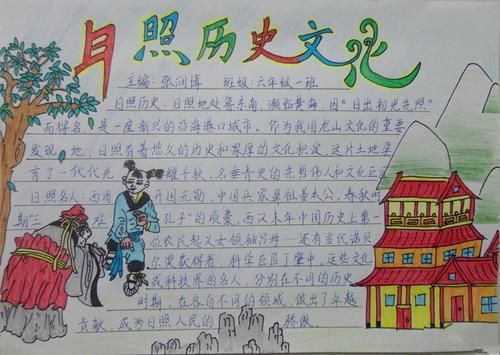 日照历史文化
主编：张润博 班级：六年级一班
日照历史：日照地处鲁东南，濒临黄海，因“日出初光先照”
而得名，是一座新兴的沿海港口城市。作为我国龙山文化的重要
发现地，日照有着悠久的历史和深厚的文化积淀，这片土地孕
育了一代代光耀千秋，名垂青史的先哲伟人和文化巨匠
日照名人：西周开国元勋，中国兵家鼻祖姜太公，春秋时
期“三 孔子”的项橐，西汉末年中国历史上第一
位农民起义女领袖吕母……还有当代诺贝
尔奖获得者，科学巨匠丁肇中，这些文化
或科技界的名人，分别在不同的历史
时期，在各自不同的领域，做出了卓越
贡献，成为日照人民的骄傲。